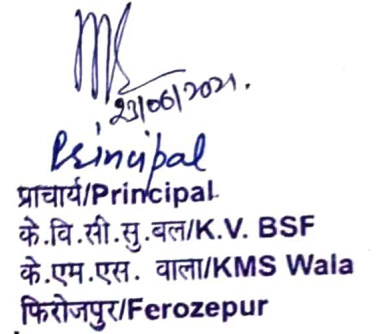 23/06/2021.
Principal
प्राचार्य/Principal
के.वि.सी.सु.बल/K.V. BSF
के.एम.एस. वाला/KMS Wala
फिरोजपुर/Ferozepur